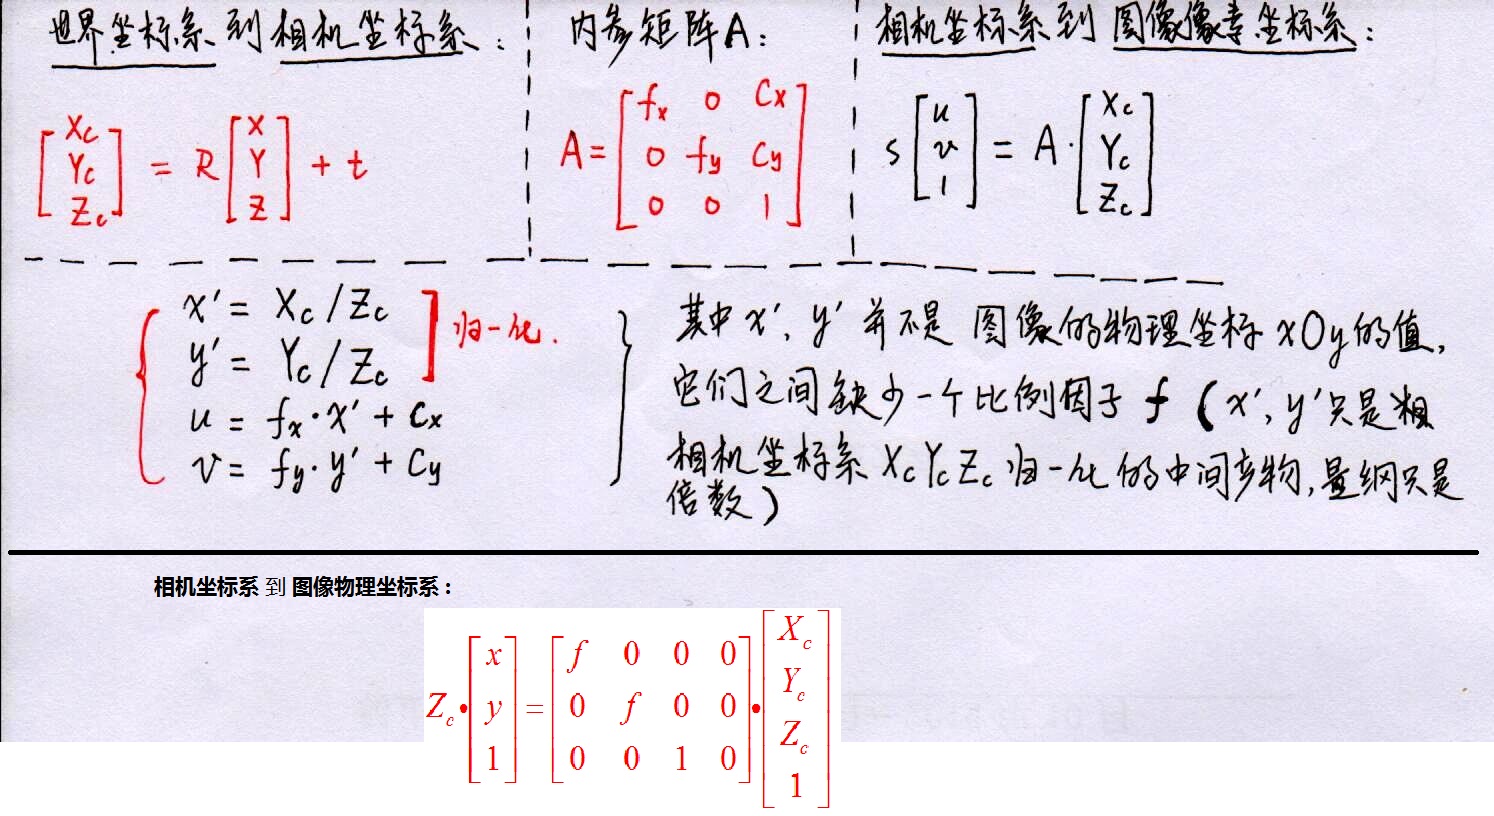 世界坐标系 到 相机坐标系：
[Xc Yc Zc] = R [X Y Z] + t
内参矩阵A：
A = [fx 0 Cx
0 fy Cy
0 0 1]
相机坐标系到 图像像素坐标系：
s [u v 1] = A · [Xc Yc Zc]
x′ = Xc / Zc
y′ = Yc / Zc
归一化.
u = fx · x′ + Cx
v = fy · y′ + Cy
其中 x′, y′ 并不是 图像的物理坐标 xOy 的值,
它们之间缺少一个比例因子 f (x′, y′只是相
相机坐标系 XcYcZc 归一化的中间产物, 量纲只是
倍数)
相机坐标系 到 图像物理坐标系：
Zc • [x y 1] = [f 0 0 0
0 f 0 0
0 0 1 0] • [Xc Yc Zc 1]